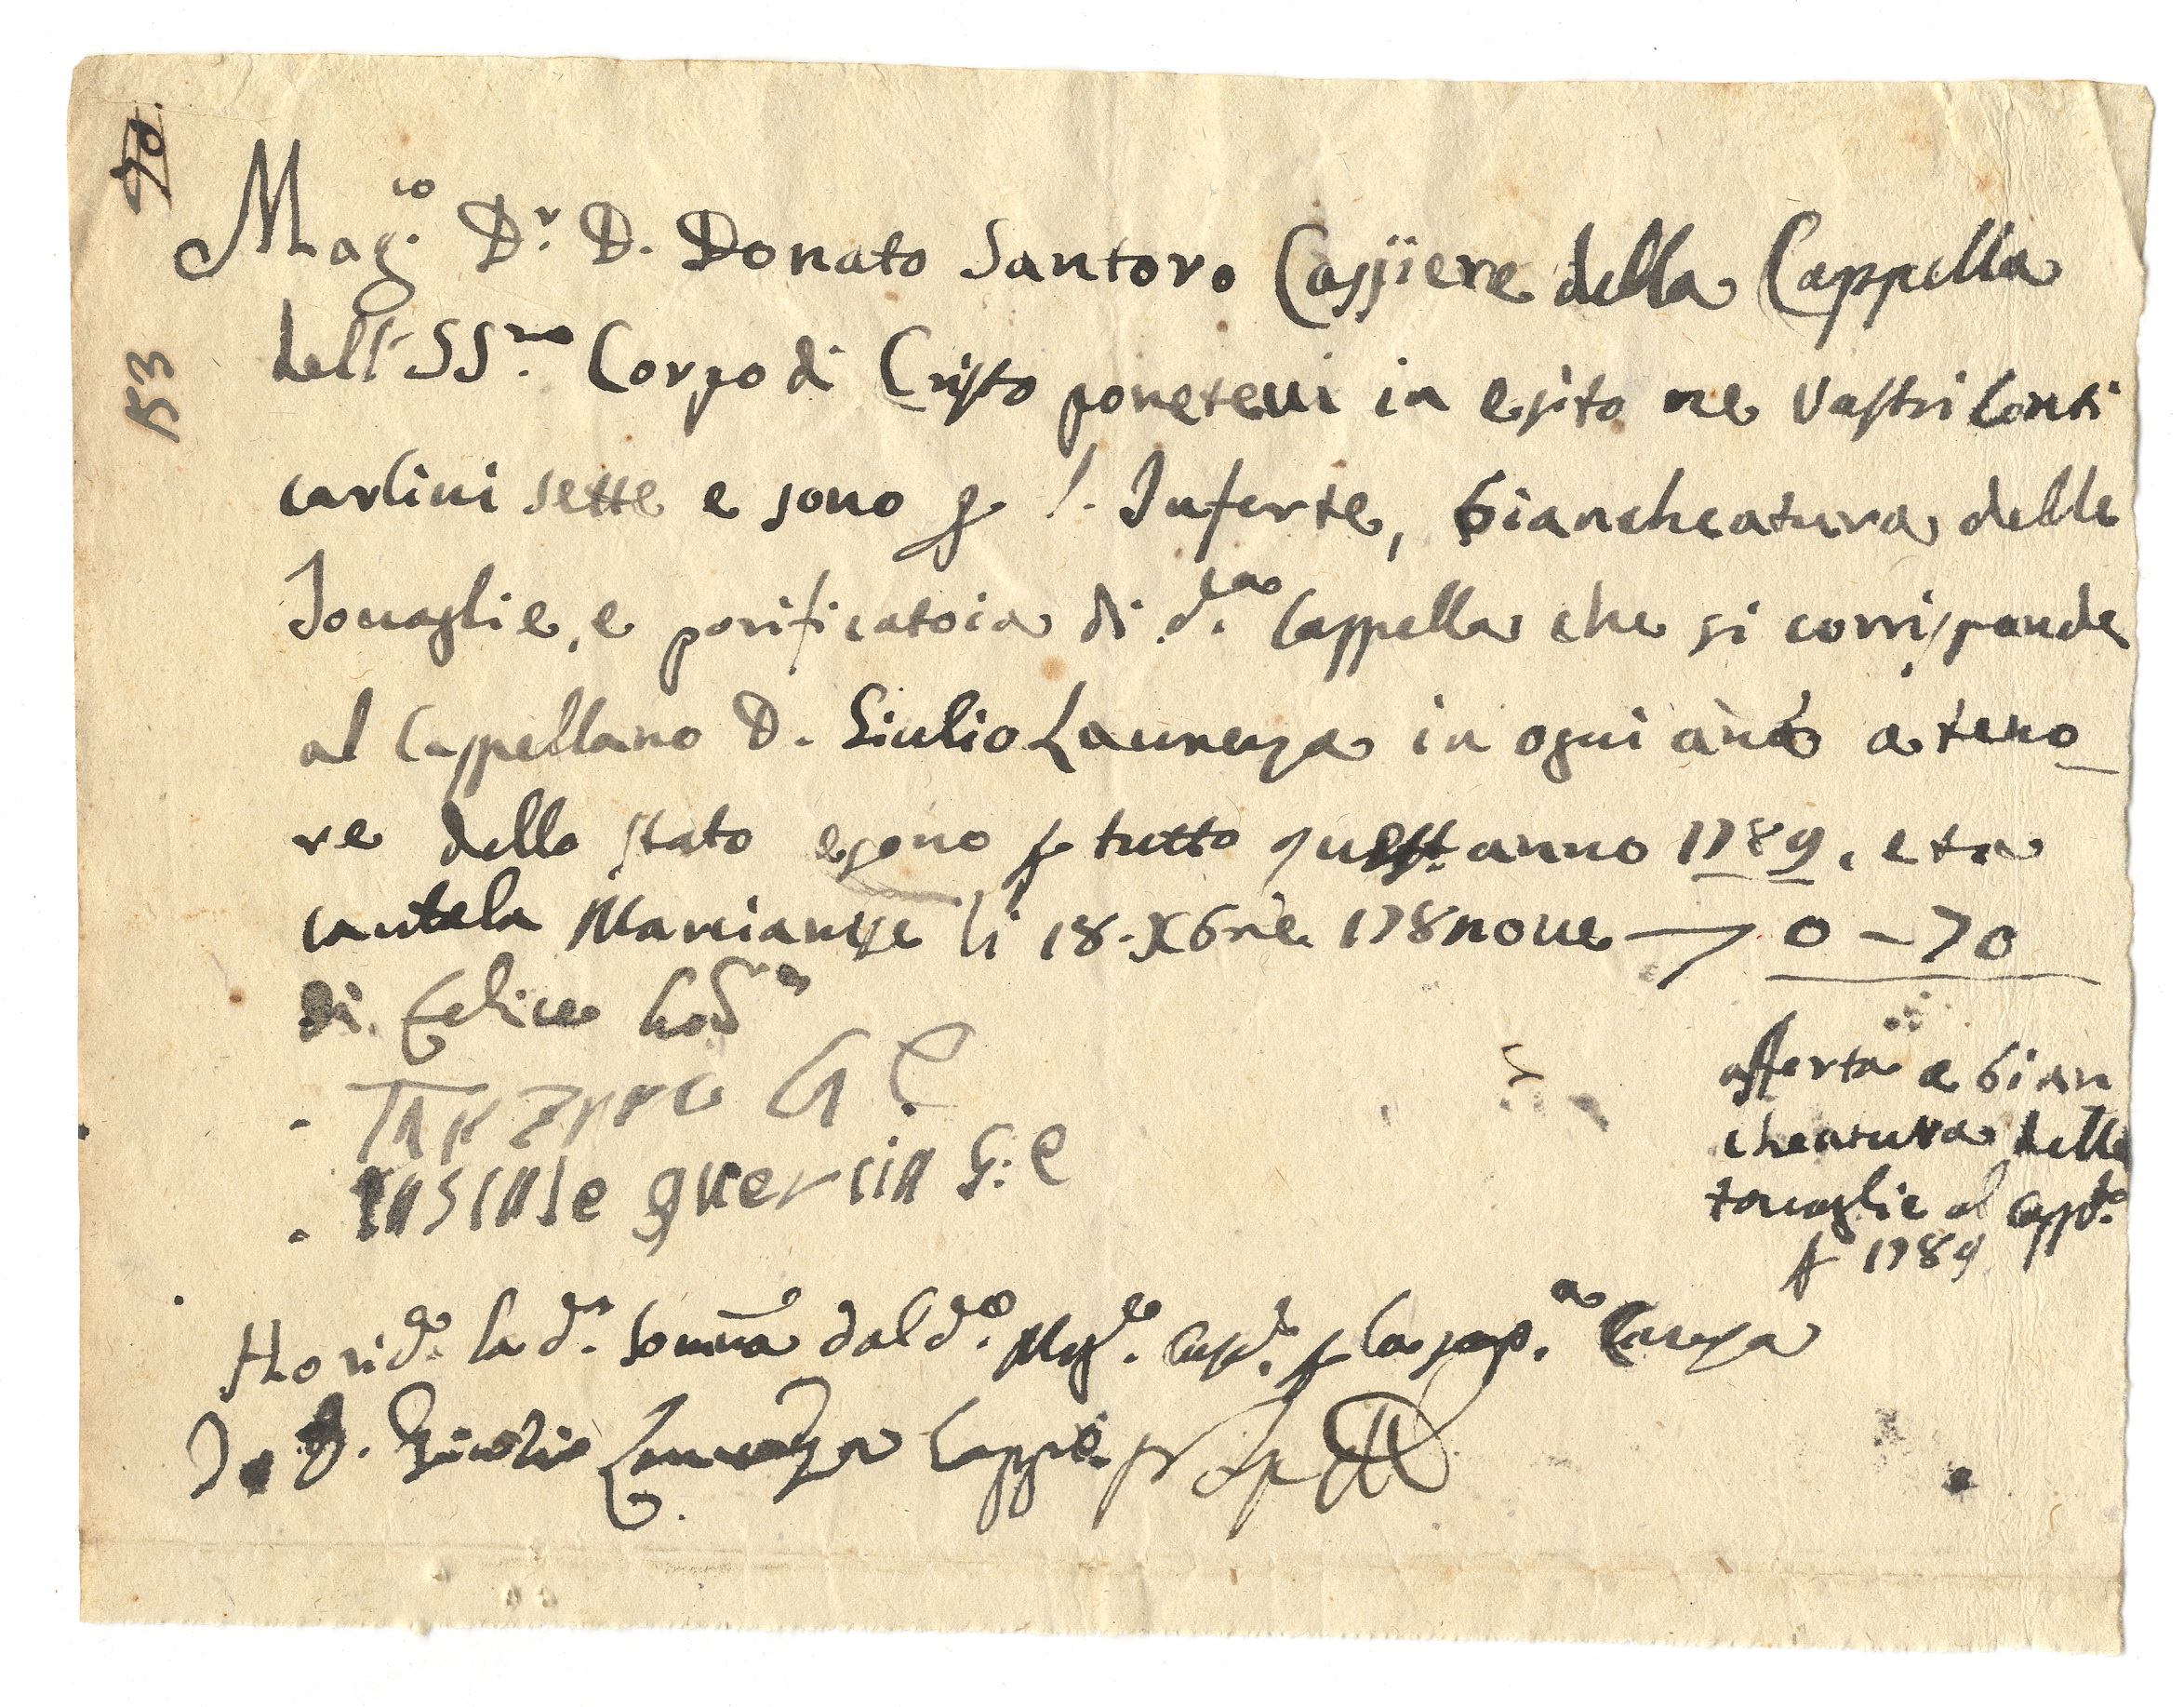 70.
53
Mag.co Dr. D. Donato Santoro Cassiere della Cappella
dell' SS.mo Corpo di Cristo ponetevi in esito ne vostri Conti
carlini sette e sono p l. Inferte, biancheatura delle
Tovaglie, e porificatoia di d.ta Cappella che si corrisponde
al Cappellano D. Giulio Laurenza in ogni anno a teno
re dello stato e sono p tutto quest. anno 1789. e ta
cautela Marcianise li 18. Xbre. 178nove — 0 – 70
di Felice
G. E
pascale guercia G: E
offerta e bian
cheatura delle
tovaglie al Capp.o
p 1789
Ho ric.to la d.a somma dal d.o Mag.co Cass.e p la
Io D. Giulio Laurenza